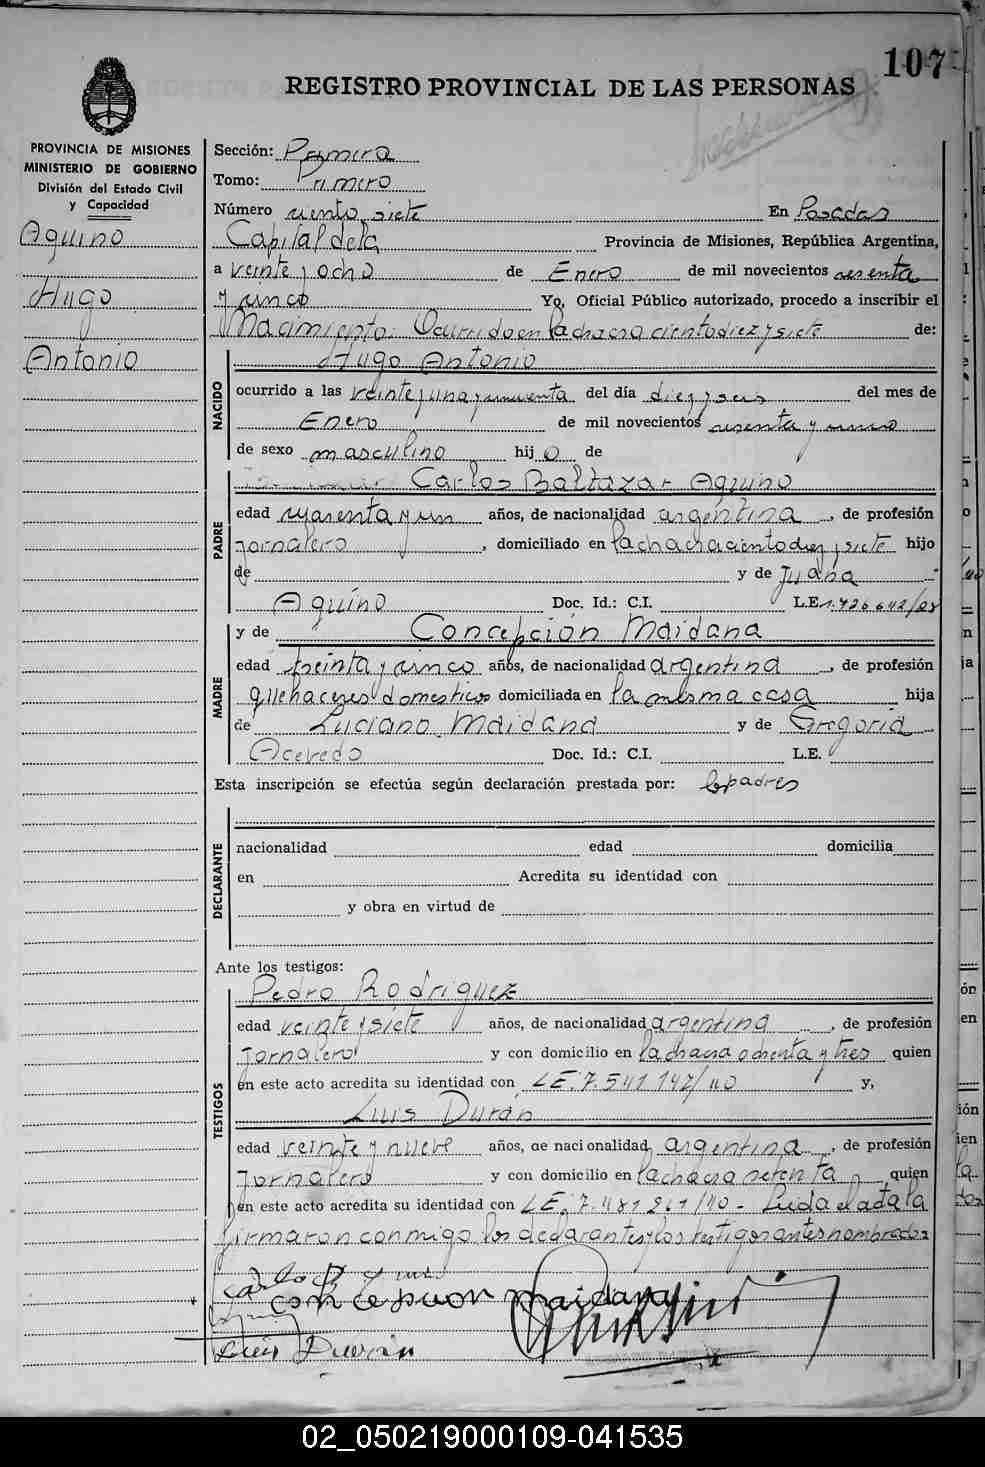 107
REGISTRO PROVINCIAL DE LAS PERSONAS
PROVINCIA DE MISIONES
MINISTERIO DE GOBIERNO
División del Estado Civil
y Capacidad
Aquino
Hugo
Antonio
Sección: Primera
Tomo: Primero
Número ciento siete En Posadas
Capital de la Provincia de Misiones, República Argentina,
a veinte y ocho de Enero de mil novecientos sesenta
y cinco Yo, Oficial Público autorizado, procedo a inscribir el
Nacimiento: Ocurrido en la chacra ciento diez y siete de:
NACIDO
Hugo Antonio
ocurrido a las veinte y una y cincuenta del día diez y seis del mes de
Enero de mil novecientos sesenta y cinco
de sexo masculino hij o de
PADRE
Carlos Baltazar Aquino
edad cuarenta y un años, de nacionalidad argentina, de profesión
jornalero, domiciliado en la chacra ciento diez y siete hijo
de y de Juana
Aquino Doc. Id.: C.I. L.E. 1.726.642/28
MADRE
y de Concepción Maidana
edad treinta y cinco años, de nacionalidad argentina, de profesión
quehaceres domesticos domiciliada en la misma casa hija
de Luciano Maidana y de Gregoria
Acevedo Doc. Id.: C.I. L.E.
Esta inscripción se efectúa según declaración prestada por: los padres
DECLARANTE
nacionalidad edad domicilia
en Acredita su identidad con
y obra en virtud de
Ante los testigos:
TESTIGOS
Pedro Rodriguez
edad veinte y siete años, de nacionalidad argentina, de profesión
jornalero y con domicilio en la chacra ochenta y tres quien
en este acto acredita su identidad con L.E. 7.541.142/40 y,
Luis Durán
edad veinte y nueve años, de nacionalidad argentina, de profesión
jornalero y con domicilio en la chacra setenta quien
en este acto acredita su identidad con L.E. 7.481.261/40 - Leida el acta la
firmaron conmigo, los declarantes y los testigos antes nombrados
Carlos B
concepcion maidana
Luis Duran
02_050219000109-041535